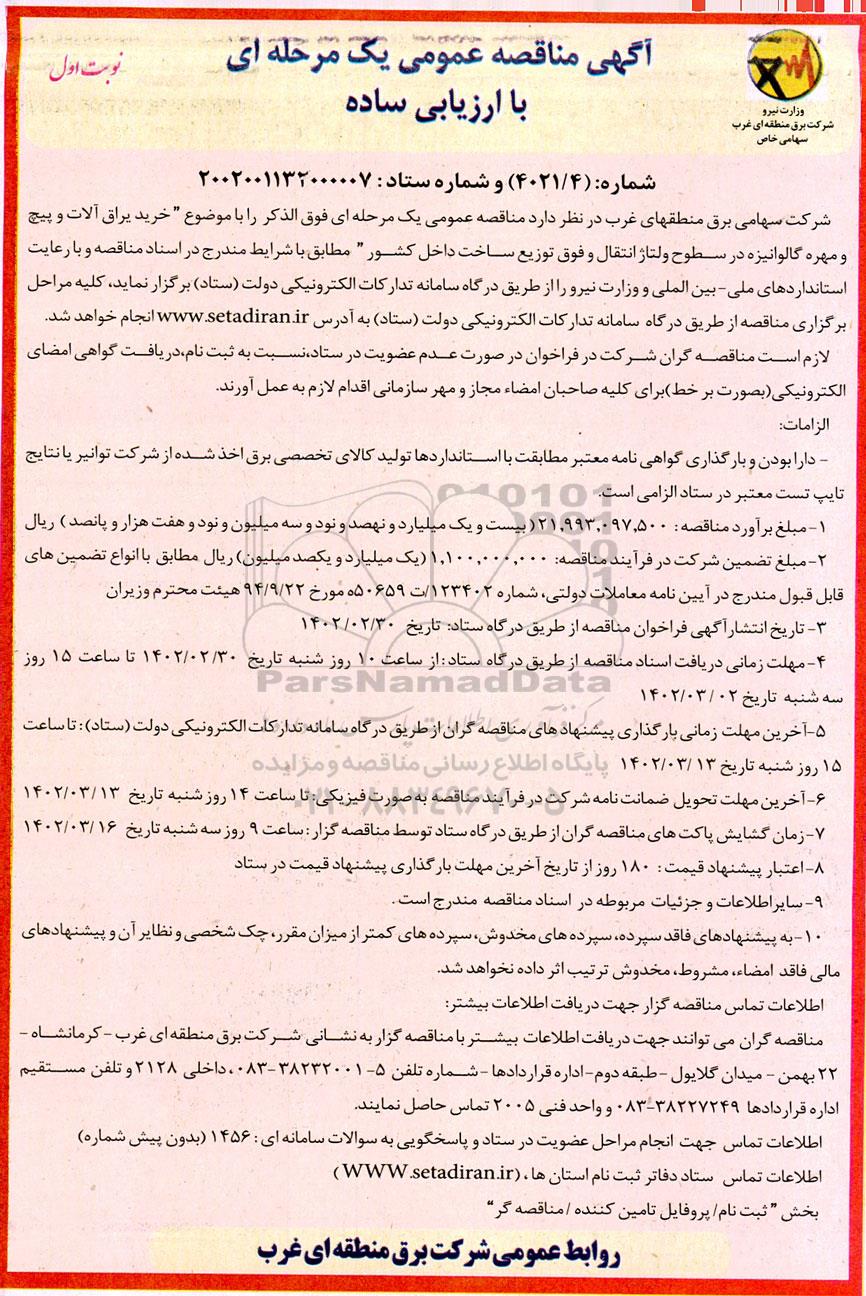 آگهی مناقصه عمومی یک مرحله ای
با ارزیابی ساده
نوبت اول
وزارت نیرو
شرکت برق منطقه ای غرب
سهامی خاص
شماره: (۴۰۲۱/۴) و شماره ستاد : ۲۰۰۲۰۰۱۱۳۲۰۰۰۰۰۷
شرکت سهامی برق منطقهای غرب در نظر دارد مناقصه عمومی یک مرحله ای فوق الذکر را با موضوع " خرید یراق آلات و پیچ
و مهره گالوانیزه در سطوح ولتاژ انتقال و فوق توزیع ساخت داخل کشور " مطابق با شرایط مندرج در اسناد مناقصه و با رعایت
استانداردهای ملی-بین المللی و وزارت نیرو را از طریق درگاه سامانه تدارکات الکترونیکی دولت (ستاد) برگزار نماید، کلیه مراحل
برگزاری مناقصه از طریق درگاه سامانه تدارکات الکترونیکی دولت (ستاد) به آدرس www.setadiran.ir انجام خواهد شد.
لازم است مناقصه گران شرکت در فراخوان در صورت عدم عضویت در ستاد،نسبت به ثبت نام،دریافت گواهی امضای
الکترونیکی(بصورت بر خط)برای کلیه صاحبان امضاء مجاز و مهر سازمانی اقدام لازم به عمل آورند.
الزامات:
- دارا بودن و بارگذاری گواهی نامه معتبر مطابقت با استانداردها تولید کالای تخصصی برق اخذ شده از شرکت توانیر یا نتایج
تایپ تست معتبر در ستاد الزامی است.
۱- مبلغ برآورد مناقصه : ۲۱,۹۹۳,۰۹۷,۵۰۰ ( بیست و یک میلیارد و نهصد و نود و سه میلیون و نود و هفت هزار و پانصد ) ریال
۲- مبلغ تضمین شرکت در فرآیند مناقصه: ۱,۱۰۰,۰۰۰,۰۰۰ (یک میلیارد و یکصد میلیون) ریال مطابق با انواع تضمین های
قابل قبول مندرج در آیین نامه معاملات دولتی، شماره ۱۲۳۴۰۲/ت ۵۰۶۵۹ه مورخ ۹۴/۹/۲۲ هیئت محترم وزیران
۳- تاریخ انتشار آگهی فراخوان مناقصه از طریق درگاه ستاد: تاریخ ۱۴۰۲/۰۲/۳۰
۴- مهلت زمانی دریافت اسناد مناقصه از طریق درگاه ستاد :از ساعت ۱۰ روز شنبه تاریخ ۱۴۰۲/۰۲/۳۰ تا ساعت ۱۵ روز
سه شنبه تاریخ ۱۴۰۲/۰۳/۰۲
۵-آخرین مهلت زمانی بارگذاری پیشنهاد های مناقصه گران از طریق درگاه سامانه تدارکات الکترونیکی دولت (ستاد) : تا ساعت
۱۵ روز شنبه تاریخ ۱۴۰۲/۰۳/۱۳
۶-آخرین مهلت تحویل ضمانت نامه شرکت در فرآیند مناقصه به صورت فیزیکی: تا ساعت ۱۴ روز شنبه تاریخ ۱۴۰۲/۰۳/۱۳
۷-زمان گشایش پاکت های مناقصه گران از طریق درگاه ستاد توسط مناقصه گزار : ساعت ۹ روز سه شنبه تاریخ ۱۴۰۲/۰۳/۱۶
۸-اعتبار پیشنهاد قیمت : ۱۸۰ روز از تاریخ آخرین مهلت بارگذاری پیشنهاد قیمت در ستاد
۹-سایراطلاعات و جزئیات مربوطه در اسناد مناقصه مندرج است .
۱۰-به پیشنهادهای فاقد سپرده، سپرده های مخدوش، سپرده های کمتر از میزان مقرر، چک شخصی و نظایر آن و پیشنهادهای
مالی فاقد امضاء، مشروط، مخدوش ترتیب اثر داده نخواهد شد.
اطلاعات تماس مناقصه گزار جهت دریافت اطلاعات بیشتر:
مناقصه گران می توانند جهت دریافت اطلاعات بیشتر با مناقصه گزار به نشانی شرکت برق منطقه ای غرب - کرمانشاه -
۲۲ بهمن - میدان گلایول -طبقه دوم-اداره قراردادها -شماره تلفن ۵-۳۸۲۳۲۰۰۱-۰۸۳، داخلی ۲۱۲۸ و تلفن مستقیم
اداره قراردادها ۳۸۲۲۷۲۴۹-۰۸۳ و واحد فنی ۲۰۰۵ تماس حاصل نمایند.
اطلاعات تماس جهت انجام مراحل عضویت در ستاد و پاسخگویی به سوالات سامانه ای : ۱۴۵۶ (بدون پیش شماره)
اطلاعات تماس ستاد دفاتر ثبت نام استان ها ، (WWW.setadiran.ir )
بخش " ثبت نام/ پروفایل تامین کننده /مناقصه گر"
روابط عمومی شرکت برق منطقه ای غرب
ParsNamadData
پایگاه اطلاع رسانی مناقصه و مزایده